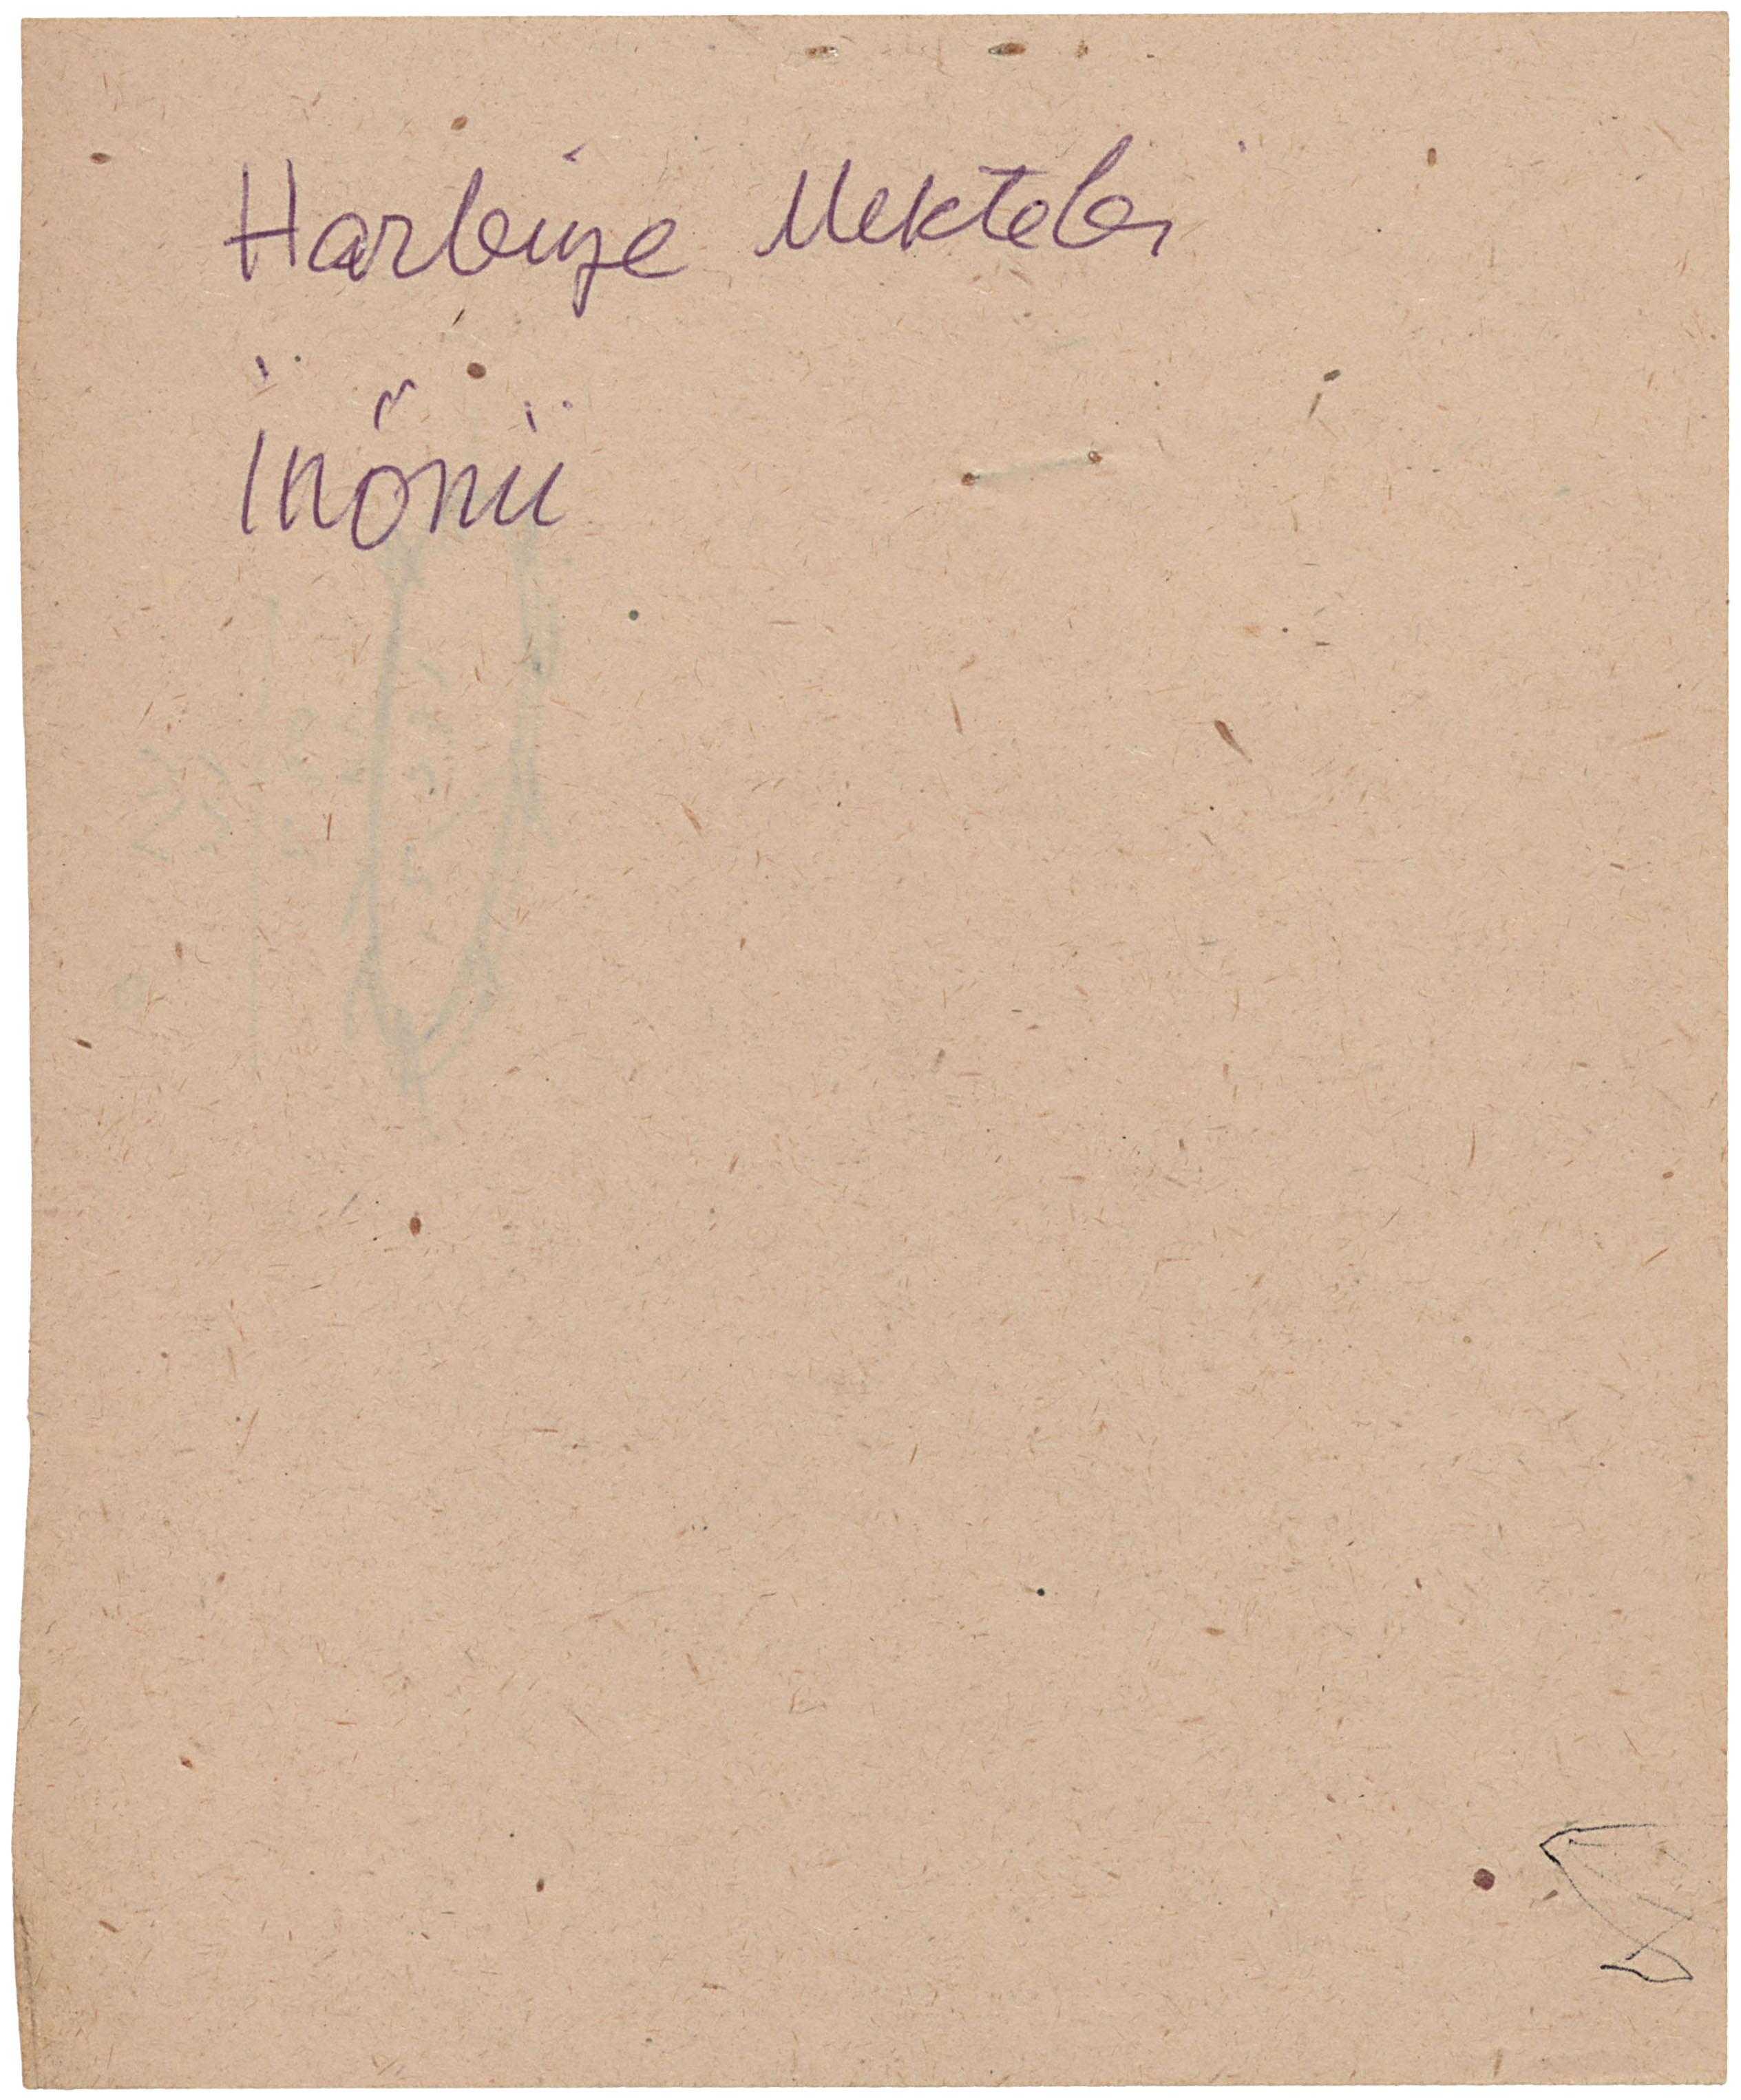 Harbiye Mektebi
İnönü